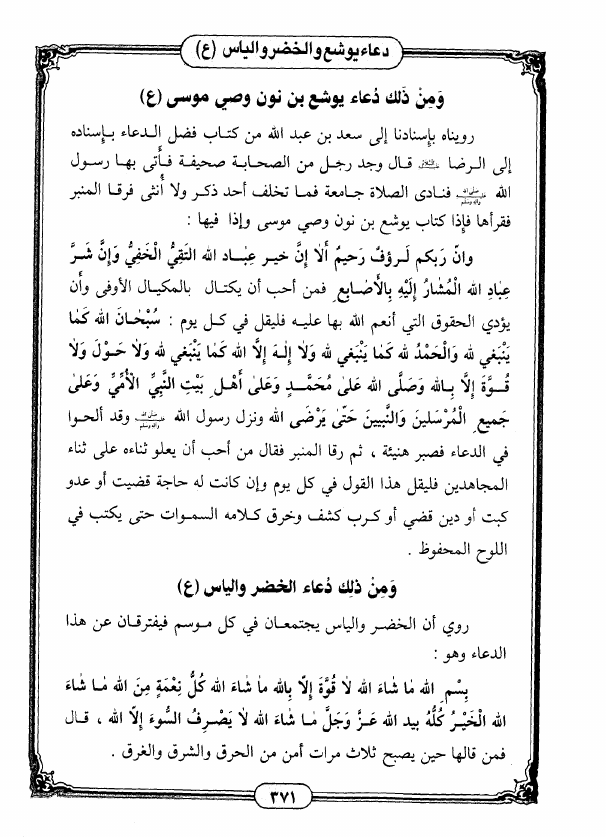 دعاء يوشع والخضر والياس (ع)
وَمِنْ ذَلِكَ دُعاء يوشع بن نون وصي موسى (ع)
رويناه بإسنادنا إلى سعد بن عبد الله من كتاب فضل الدعاء بإسناده
إلى الرضا قال وجد رجل من الصحابة صحيفة فأتى بها رسول
الله ﷺ فنادى الصلاة جامعة فما تخلف أحد ذكر ولا أُنثى فرقا المنبر
فقرأها فإذا كتاب يوشع بن نون وصي موسى وإذا فيها :
وانّ رَبكم لَرؤفٌ رَحيمٌ ألا إنَّ خير عِبَاد الله التَقِيُّ الْخَفِيُّ وَإِنَّ شَرَّ
عِبَادِ الله الْمُشَارُ إِلَيْهِ بِالأَصَابِعِ فمن أحب أن يكتال بالمكيال الأوفى وأن
يؤدي الحقوق التي أنعم الله بها عليه فليقل في كل يوم : سُبْحَانَ الله كَمَا
يَنْبَغي لله وَالْحَمْدُ لله كَمَا يَنْبَغي لله وَلا إِلهَ إِلَّا الله كَمَا يَنْبَغي لله وَلا حَوْلَ وَلا
قُوَّةَ إِلَّا بِالله وَصَلَّى الله عَلى مُحَمَّدٍ وَعَلى أَهْلِ بَيْتِ النَّبِيِّ الأُمِّيِّ وَعَلى
جَميعِ الْمُرْسَلينَ وَالنَّبِيينَ حَتّى يَرْضَى الله ونزل رسول الله ﷺ وقد ألحوا
في الدعاء فصبر هنيئة ، ثم رقا المنبر فقال من أحب أن يعلو ثناءه على ثناء
المجاهدين فليقل هذا القول في كل يوم وإن كانت له حاجة قضيت أو عدو
كبت أو دين قضي أو كرب كشف وخرق كلامه السموات حتى يكتب في
اللوح المحفوظ .
وَمِنْ ذلِكَ دُعاء الخضر والياس (ع)
روي أن الخضر والياس يجتمعان في كل موسم فيفترقان عن هذا
الدعاء وهو :
بِسْمِ الله مَا شَاءَ الله لا قُوَّةَ إِلّا بِالله ما شَاءَ الله كُلُّ نِعْمَةٍ مِنَ الله مَا شَاءَ
الله الْخَيْرُ كُلُّهُ بيد الله عَزَّ وَجَلَّ مَا شَاءَ الله لا يَصْرِفُ السُّوءَ إِلّا الله ، قال
فمن قالها حين يصبح ثلاث مرات أمن من الحرق والشرق والغرق .
٣٧١